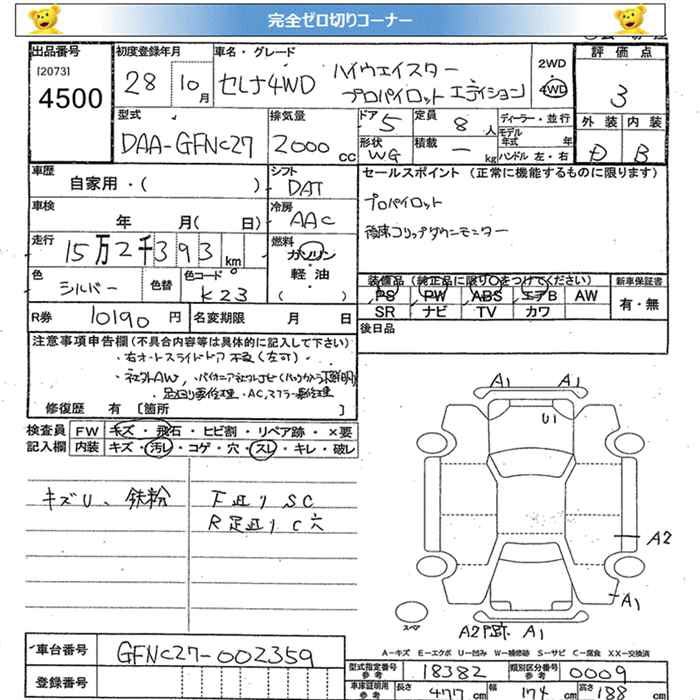 完全ゼロ切りコーナー
出品番号 初度登録年月 車名・グレード 評価点
[2073] 4500
28 10月 セレナ4WD ハイウェイスター プロパイロットエディション 2WD 4WD 3
型式 排気量 ドア 5 定員 8人 ディーラー・並行 外装 内装
DAA-GFNC27 2000cc 形状 WG 積載 ー kg モデル年式 年 ハンドル 左・右 D B
車歴 自家用・( ) シフト DAT セールスポイント(正常に機能するものに限ります)
車検 年 月( 日) 冷房 AAC プロパイロット
走行 15万2千393km 燃料 ガソリン 軽・油 ( ) 後席フリップダウンモニター
色 シルバー 色替 色コード K23 装備品(純正品に限り○をつけてください) 新車保証書
PS PW ABS エアB AW 有・無
SR ナビ TV カワ
R券 10190円 名変期限 月 日 後日品
注意事項申告欄(不具合内容等は具体的に記入して下さい)
・右オートスライドドア不良(左可)・
・社外AW,
・AC,マフラー要修理
修復歴 有 [箇所 ]
検査員記入欄 FW キズ・飛石・ヒビ割・リペア跡・×要
内装 キズ・汚レ・コゲ・穴・スレ・キレ・破レ
キズU、鉄粉 下廻りSC
R足廻りC穴
A1 A1
U1
A2
A1
スペア
A2 A1
A-キズ E-エクボ U-凹み W-補修跡 S-サビ C-腐食 XX-交換済
車台番号 GFNC27-002359
登録番号
型式指定番号 参考 18382 類別区分番号 参考 0009
車庫証明用 参考 長さ 477cm 幅 174cm 高さ 188cm